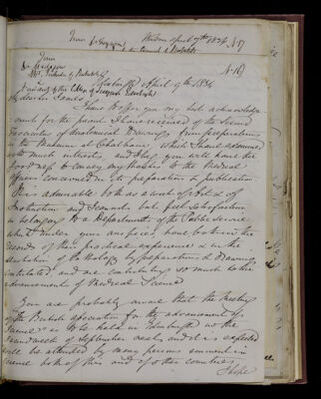 from
April 7th 1834
N. 17
from
N. 16
Edinburgh April 9th 1834
My dear Sir James
I have to offer you my best acknowledge
ments for the proof I have received of the Second
Fasciculus of Anatomical Drawings from preparations
in the Museum at Chatham, which I have admired
with much interest, and I beg you will have the
goodness to convey my thanks to the Medical
Officers concerned in its preparation & publication
It is admirable both as a work of Art & of
Instruction and I cannot but feel satisfaction
in belonging to a Department of the Public Service
which under your auspices have both in the
records of their practical experience & in the
elucidation of Pathology by preparations & Drawings
contributed and are contributing so much to the
advancement of Medical Science
You are probably aware that the meeting
of the British Association for the advancement of
Science is to be held in Edinburgh in the
second week of September next, and it is expected
will be attended by many persons eminent in
Science both of this and of other countries
I hope